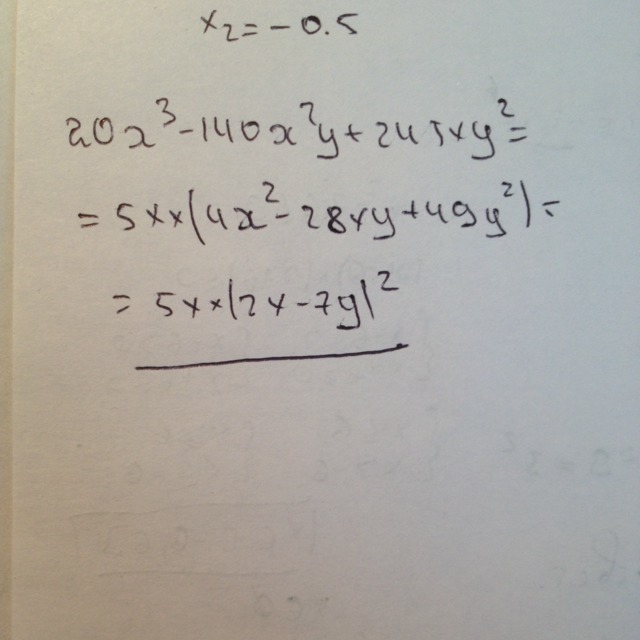 x₂=-0.5
20x³-140x²y+245xy²=
=5xx(4x²-28xy+49y²)=
=5xx(2x-7y)²